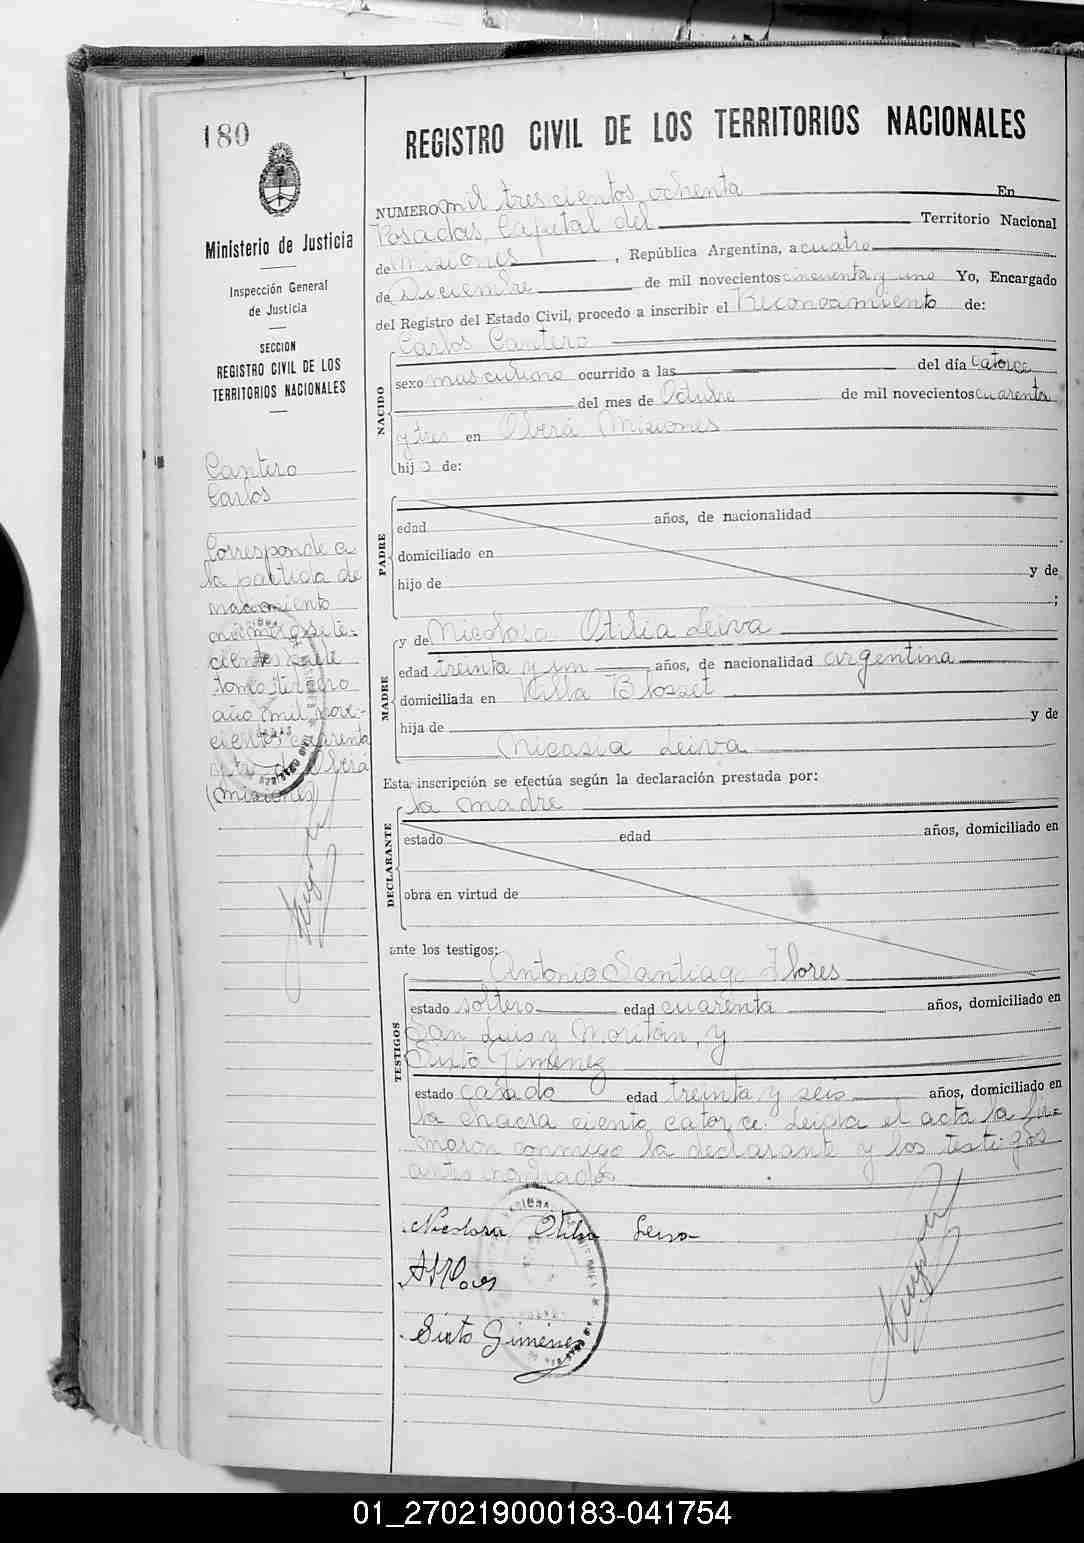 180
REGISTRO CIVIL DE LOS TERRITORIOS NACIONALES
Ministerio de Justicia
Inspección General
de Justicia
SECCION
REGISTRO CIVIL DE LOS
TERRITORIOS NACIONALES
Cantero
Carlos
Corresponde a
la partida de
nacimiento
mil siete-
cientos siete
tomo tercero
año mil nove-
cientos cuarenta
y tres Oberá
(Misiones)
NUMERO mil trescientos ochenta En
Posadas, Capital del Territorio Nacional
de Misiones, República Argentina, a cuatro
de Diciembre de mil novecientos cincuenta y uno Yo, Encargado
del Registro del Estado Civil, procedo a inscribir el Reconocimiento de:
NACIDO
Carlos Cantero
sexo masculino ocurrido a las del día catorce
del mes de Octubre de mil novecientos cuarenta
y tres en Oberá Misiones
hijo de:
PADRE
edad años, de nacionalidad
domiciliado en
hijo de y de
;
MADRE
y de Nicolasa Otilia Leiva
edad treinta y un años, de nacionalidad argentina
domiciliada en Villa Blosset
hija de y de
Nicasia Leiva
Esta inscripción se efectúa según la declaración prestada por:
la madre
DECLARANTE
estado edad años, domiciliado en
obra en virtud de
ante los testigos:
Antonio Santiago Flores
TESTIGOS
estado soltero edad cuarenta años, domiciliado en
San Luis y Moritán, y
Sixto Jimenez
estado casado edad treinta y seis años, domiciliado en
la chacra ciento catorce. Leida el acta la fir-
maron conmigo la declarante y los testigos
antes nombrados
Nicolasa Otilia Leiva
ASFlores
Sixto Gimenez
01_270219000183-041754